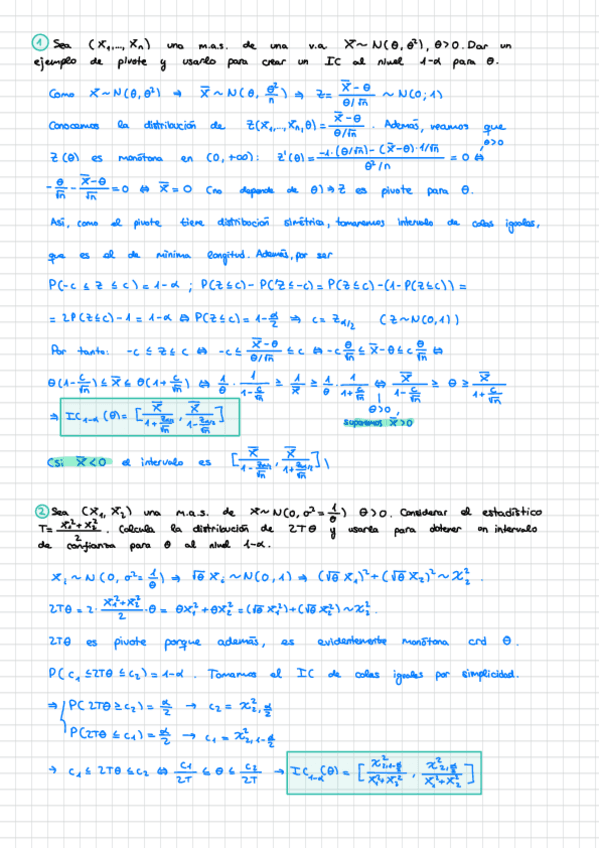 ① Sea (X₁,...,Xₙ) una m.a.s. de una v.a. X~N(θ, θ²), θ>0. Dar un
ejemplo de pivote y usarlo para crear un IC al nivel 1-α para θ.
Como X~N(θ,θ²) ⇒ X̄~N(θ, θ²/n) ⇒ Z= (X̄-θ)/(θ/√n) ~N(0;1)
Conocemos la distribución de Z(X₁,...,Xₙ,θ)= (X̄-θ)/(θ/√n). Además, veamos que
Z(θ) es monótona en (0,+∞): Z'(θ)= (-1·(θ/√n)-(X̄-θ)·1/√n)/(θ²/n) = 0 ⇔ , θ>0
-θ/√n - (X̄-θ)/√n =0 ⇔ X̄=0 (no depende de θ) ⇒ Z es pivote para θ.
Así, como el pivote tiene distribución simétrica, tomaremos intervalo de colas iguales,
que es el de mínima longitud. Además, por ser
P(-c ≤ Z ≤ c)=1-α ; P(Z≤c)-P(Z≤-c)=P(Z≤c)-(1-P(Z≤c))=
=2P(Z≤c)-1=1-α ⇔ P(Z≤c)=1-α/2 ⇒ c=Z_α/2 (Z~N(0,1))
Por tanto: -c ≤ Z ≤ c ⇔ -c ≤ (X̄-θ)/(θ/√n) ≤ c ⇔ -c θ/√n ≤ X̄-θ ≤ c θ/√n ⇔
θ(1-c/√n) ≤ X̄ ≤ θ(1+c/√n) ⇔ 1/θ · 1/(1-c/√n) ≥ 1/X̄ ≥ 1/θ · 1/(1+c/√n) ⇔ X̄/(1-c/√n) ≥ θ ≥ X̄/(1+c/√n)
θ>0,
suponemos X̄>0
⇒ IC₁₋α(θ)= [ X̄/(1+Z_α/2/√n) , X̄/(1-Z_α/2/√n) ]
(Si X̄<0 el intervalo es [ X̄/(1-Z_α/2/√n) , X̄/(1+Z_α/2/√n) ] )
② Sea (X₁, X₂) una m.a.s. de X~N(0, σ²=1/θ) θ>0. Considerar el estadístico
T= (X₁²+X₂²)/2 . Calcula la distribución de 2Tθ y usarla para obtener un intervalo
de confianza para θ al nivel 1-α.
Xᵢ~N(0, σ²=1/θ) ⇒ √θ Xᵢ~N(0,1) ⇒ (√θ X₁)²+(√θ X₂)²~χ²₂ .
2Tθ = 2· (X₁²+X₂²)/2 ·θ = θX₁²+θX₂² = (√θ X₁²)+(√θ X₂²)~χ²₂.
2Tθ es pivote porque además, es evidentemente monótona crd θ.
P(c₁ ≤ 2Tθ ≤ c₂)=1-α . Tomamos el IC de colas iguales por simplicidad.
⇒ P(2Tθ ≥ c₂)= α/2 → c₂ = χ²₂,α/2
P(2Tθ ≤ c₁)= α/2 → c₁ = χ²₂,1-α/2
→ c₁ ≤ 2Tθ ≤ c₂ ⇔ c₁/2T ≤ θ ≤ c₂/2T → IC₁₋α(θ) = [ χ²₂,1-α/2/(X₁²+X₂²) , χ²₂,α/2/(X₁²+X₂²) ]